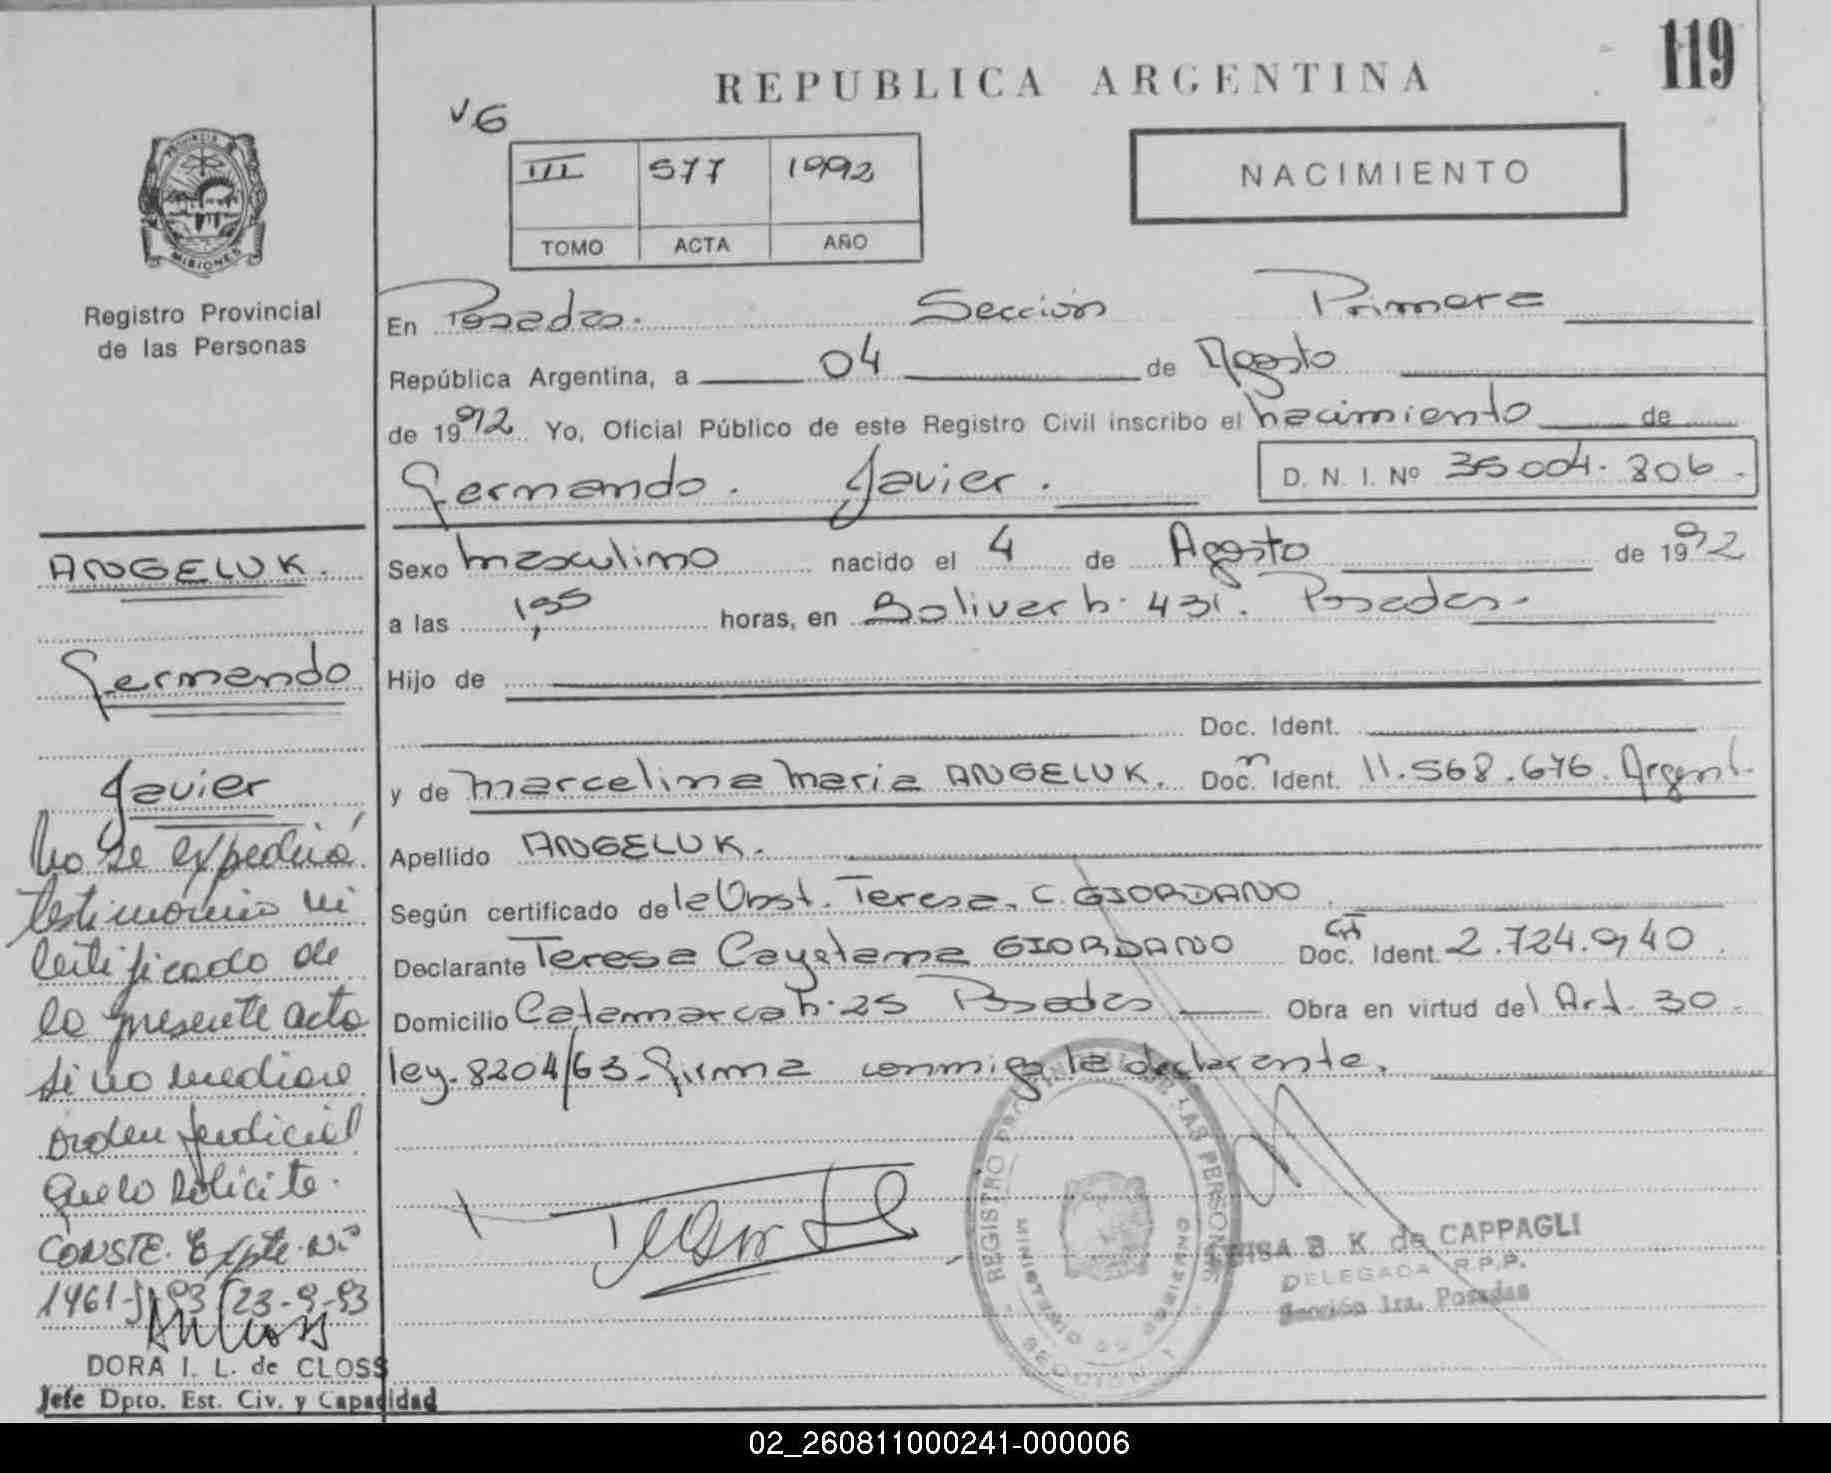 119
REPUBLICA ARGENTINA
VG
NACIMIENTO
III 577 1992
TOMO ACTA AÑO
PROVINCIA DE
MISIONES
Registro Provincial
de las Personas
En Posadas. Sección Primera
República Argentina, a 04 de Agosto
de 1992 Yo, Oficial Público de este Registro Civil inscribo el nacimiento de
Germando. Javier.
D. N. I. Nº 35004.806.
ANGELUK.
Germando
Javier
Sexo masculino nacido el 4 de Agosto de 1992
a las 1,55 horas, en Bolivar n. 431. Posadas.
Hijo de
Doc. Ident.
y de Marcelina Maria ANGELUK. Doc. Ident. 11.568.676. Argent.
Apellido ANGELUK.
Según certificado de la Obst. Teresa. C. GIORDANO.
Declarante Teresa Cayetana GIORDANO Doc. Ident. 2.724.940.
Domicilio Catamarca n. 25 Posadas Obra en virtud del Art. 30.
ley. 8204/63. firma conmigo la declarante.
No se expedirá
testimonio ni
certificado de
la presente acta
si no mediare
orden judicial
que lo solicite.
CONSTE. Expte. Nº
1461-93 23-9-93
DORA I. L. de CLOSS
Jefe Dpto. Est. Civ. y Capacidad
REGISTRO PROVINCIAL DE LAS PERSONAS
MINISTERIO DE GOBIERNO
B K de CAPPAGLI
DELEGADA R.P.P.
Sección 1ra. Posadas
02_260811000241-000006